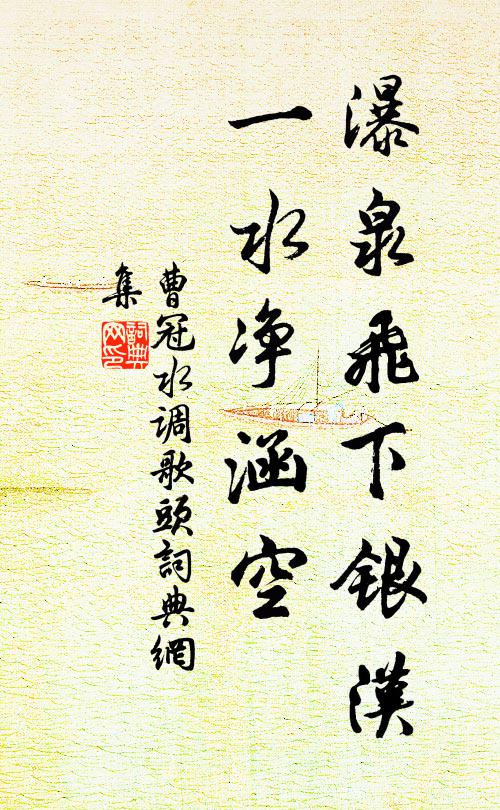 瀑泉飛下銀漢
一水净涵空
曹冠水调歌頭詞典網
集
詞典網印